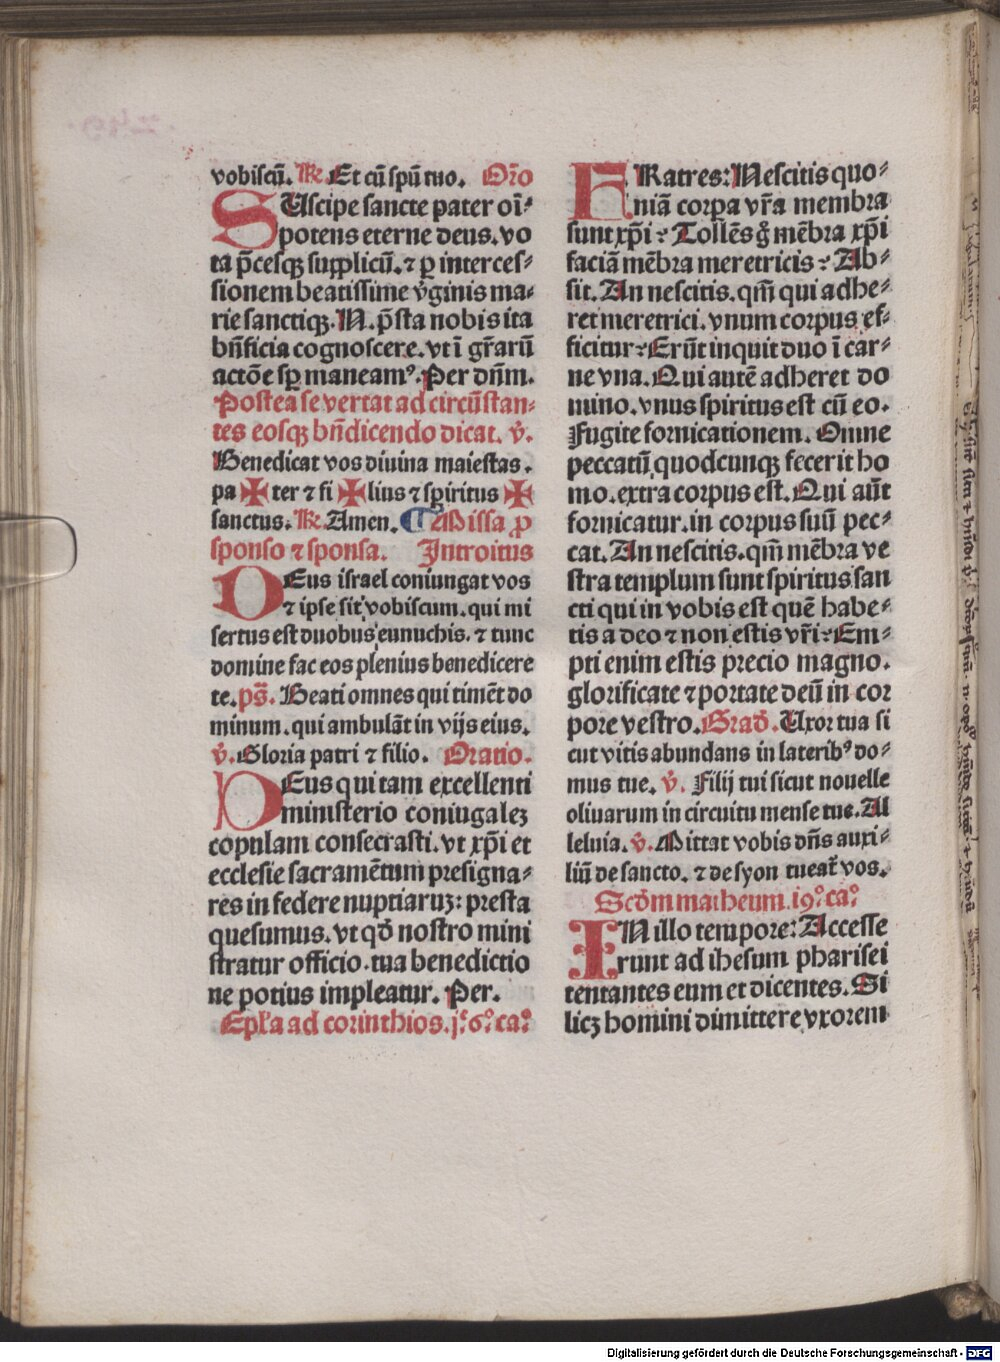 vobiscū. ℟. Et cū spū tuo. Or̄o
SUscipe sancte pater oī-
potens eterne deus. vo
ta p̄cesqꝫ supplicū. ⁊ ꝑ interces-
sionem beatissime v̄ginis ma-
rie sanctiqꝫ. N. p̄sta nobis ita
bn̄ficia cognoscere. vt ī gr̄arū
actōe sꝑ maneamꝰ. Per dn̄m.
Postea se vertat ad circūstan-
tes eosqꝫ bn̄dicendo dicat. v̄.
Benedicat vos diuina maiestas.
pa ✠ ter ⁊ fi ✠ lius ⁊ spiritus ✠
sanctus. ℟. Amen. ¶ Missa ꝓ
sponso ⁊ sponsa. Introitus
DEus israel coniungat vos
⁊ ipse sit vobiscum. qui mi
sertus est duobus eunuchis. ⁊ tunc
domine fac eos plenius benedicere
te. ps̄. Beati omnes qui timēt do
minum. qui ambulāt in vijs eius.
v̄. Gloria patri ⁊ filio. Oratio.
DEus qui tam excellenti
ministerio coniugalez
copulam consecrasti. vt xp̄i et
ecclesie sacramētum presigna-
res in federe nuptiaruꝫ: presta
quesumus. vt qd̄ nostro mini
stratur officio. tua benedictio
ne potius impleatur. Per.
Epl̄a ad corinthios. j.º 6.º ca.º
FRatres: Nescitis quo-
niā corpa vr̄a membra
sunt xp̄i? Tollēs gͦ mēbra xp̄i
faciā mēbra meretricis? Ab-
sit. An nescitis. qm̄ qui adhe-
ret meretrici. vnum corpus ef-
ficitur? Erūt inquit duo ī car-
ne vna. Qui autē adheret do
mino. vnus spiritus est cū eo.
Fugite fornicationem. Omne
peccatū quodcunqꝫ fecerit ho
mo. extra corpus est. Qui aūt
fornicatur. in corpus suū pec-
cat. An nescitis. qm̄ mēbra ve
stra templum sunt spiritus san
cti qui in vobis est quē habe-
tis a deo ⁊ non estis vr̄i? Em-
pti enim estis precio magno.
glorificate ⁊ portate deū in cor
pore vestro. Grad̄. Uxor tua si
cut vitis abundans in lateribꝰ do-
mus tue. v̄. Filij tui sicut nouelle
oliuarum in circuitu mense tue. Al
leluia. v̄. Mittat vobis dn̄s auxi-
liū de sancto. ⁊ de syon tueat̄ vos.
Scd̄m matheum. 19.º ca.º
IN illo tempore: Accesse
runt ad ihesum pharisei
tentantes eum et dicentes. Si
licꝫ homini dimittere vxorem
Digitalisierung gefördert durch die Deutsche Forschungsgemeinschaft - DFG